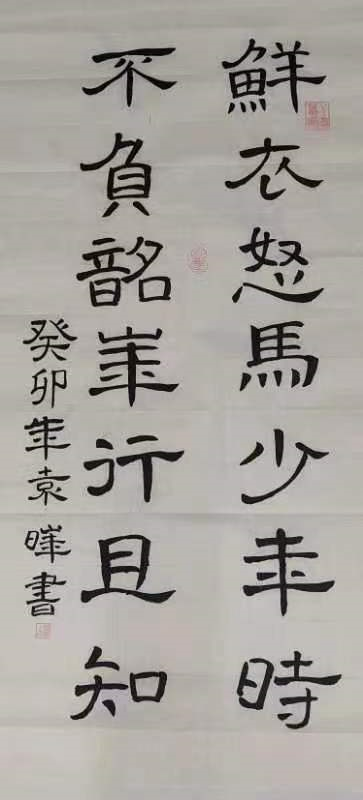 鮮衣怒馬少年時
不負韶華行且知
癸卯年袁曄書